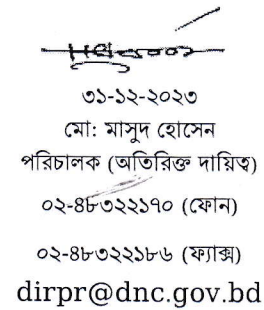 ৩১-১২-২০২৩
মো: মাসুদ হোসেন
পরিচালক (অতিরিক্ত দায়িত্ব)
০২-৪৮৩২২১৭০ (ফোন)
০২-৪৮৩২২১৮৬ (ফ্যাক্স)
dirpr@dnc.gov.bd